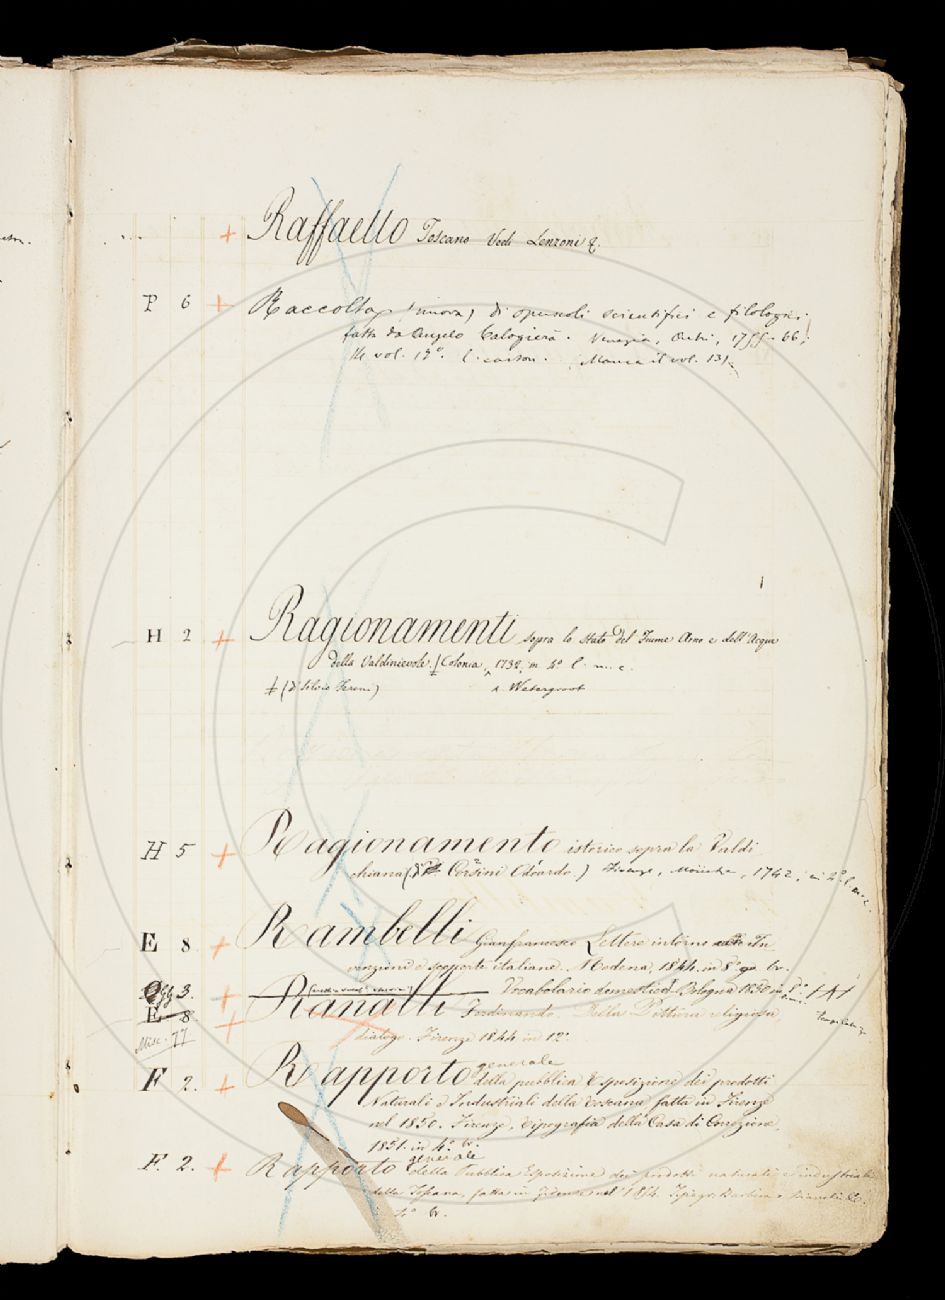 Raffaello Toscano Vedi Lenzoni
P 6 Raccolta (nuova) di opuscoli scientifici e filologici
fatta da Angelo Calogierà. Venezia, Occhi, 1755-66
14 vol. 12°. (Manca il vol. 13)
H 2 Ragionamenti sopra lo stato del Fiume Arno e dell'Acque
della Valdinievole. Colonia, 1732, in 4° l. m. c.
^ Watergroot
H 5 Ragionamento istorico sopra la Valdi
chiana Corsini Edoardo) Firenze, 1742, in
E 8 Rambelli Gianfrancesco Lettere intorno In
venzioni e scoperte italiane. Modena, 1844. in 8° br.
3. Vocabolario domestico Bologna 1850 in 8°
E 8 Ranalli Ferdinando. Della Pittura religiosa,
Misc. 77 dialogo. Firenze 1844 in 12°
F 2. Rapporto generale
della pubblica Esposizione dei prodotti
Naturali e Industriali della Toscana fatta in Firenze
nel 1850. Firenze, Tipografia della Casa di Correzione,
1851. in 4° br.
F. 2. Rapporto generale
della Pubblica Esposizione dei prodotti naturali e industriali
della Toscana fatta in Firenze nel 1854.
4° br.